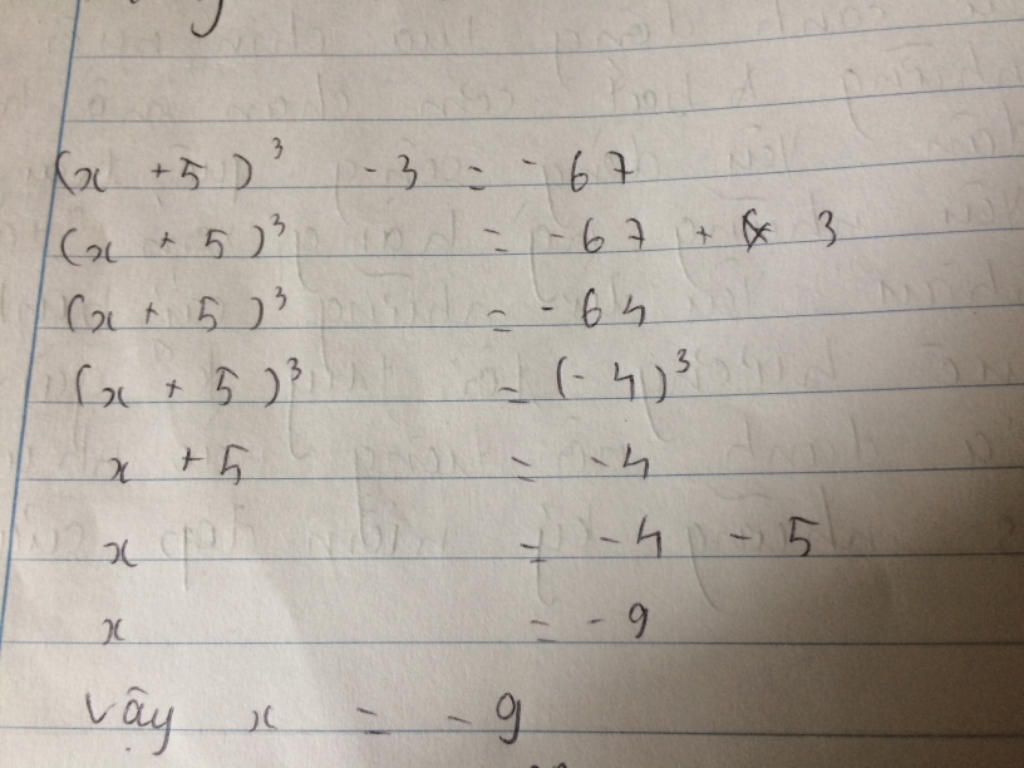 (x + 5)³ - 3 = -67
(x + 5)³ = -67 + 3
(x + 5)³ = -64
(x + 5)³ = (-4)³
x + 5 = -4
x = -4 - 5
x = -9
Vậy x = -9